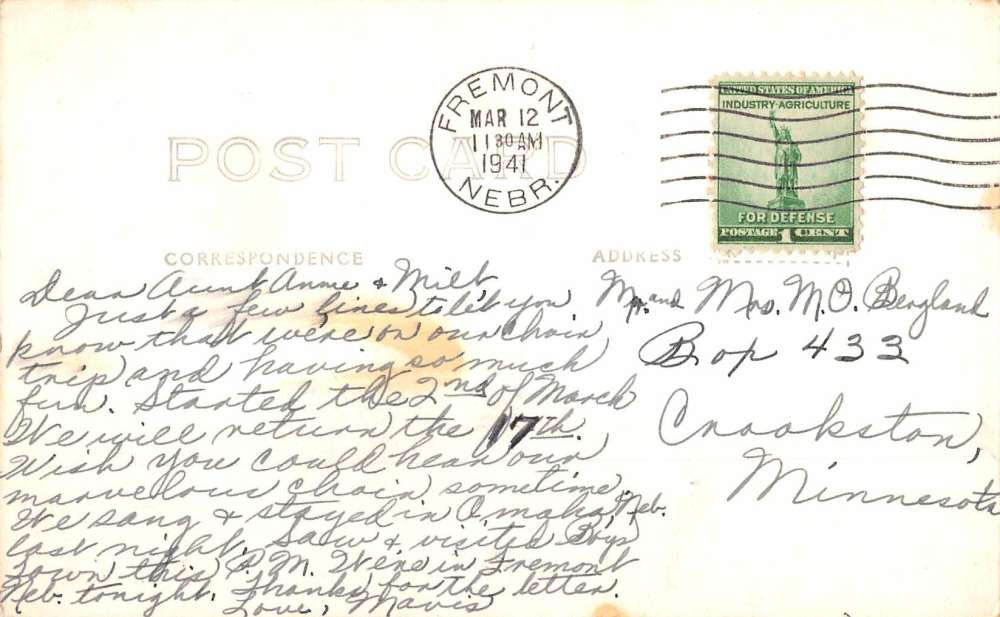 POST CARD
FREMONT
MAR 12
11 30 AM
1941
NEBR.
UNITED STATES OF AMERICA
INDUSTRY-AGRICULTURE
FOR DEFENSE
POSTAGE 1 CENT
CORRESPONDENCE
ADDRESS
Dear Aunt Anne & Milt,
Just a few lines to let you
know that we're on our choir
trip and having so much
fun. Started the 2nd of March
We will return the 17th.
Wish you could hear our
marvelous choir sometime.
We sang & stayed in Omaha, Neb.
last night. Saw & visited Boys
Town this P.M. We're in Fremont
Neb. tonight. Thanks for the letter.
Love, Mavis
Mr. and Mrs. M. O. Bergland
Box 433
Crookston,
Minnesota